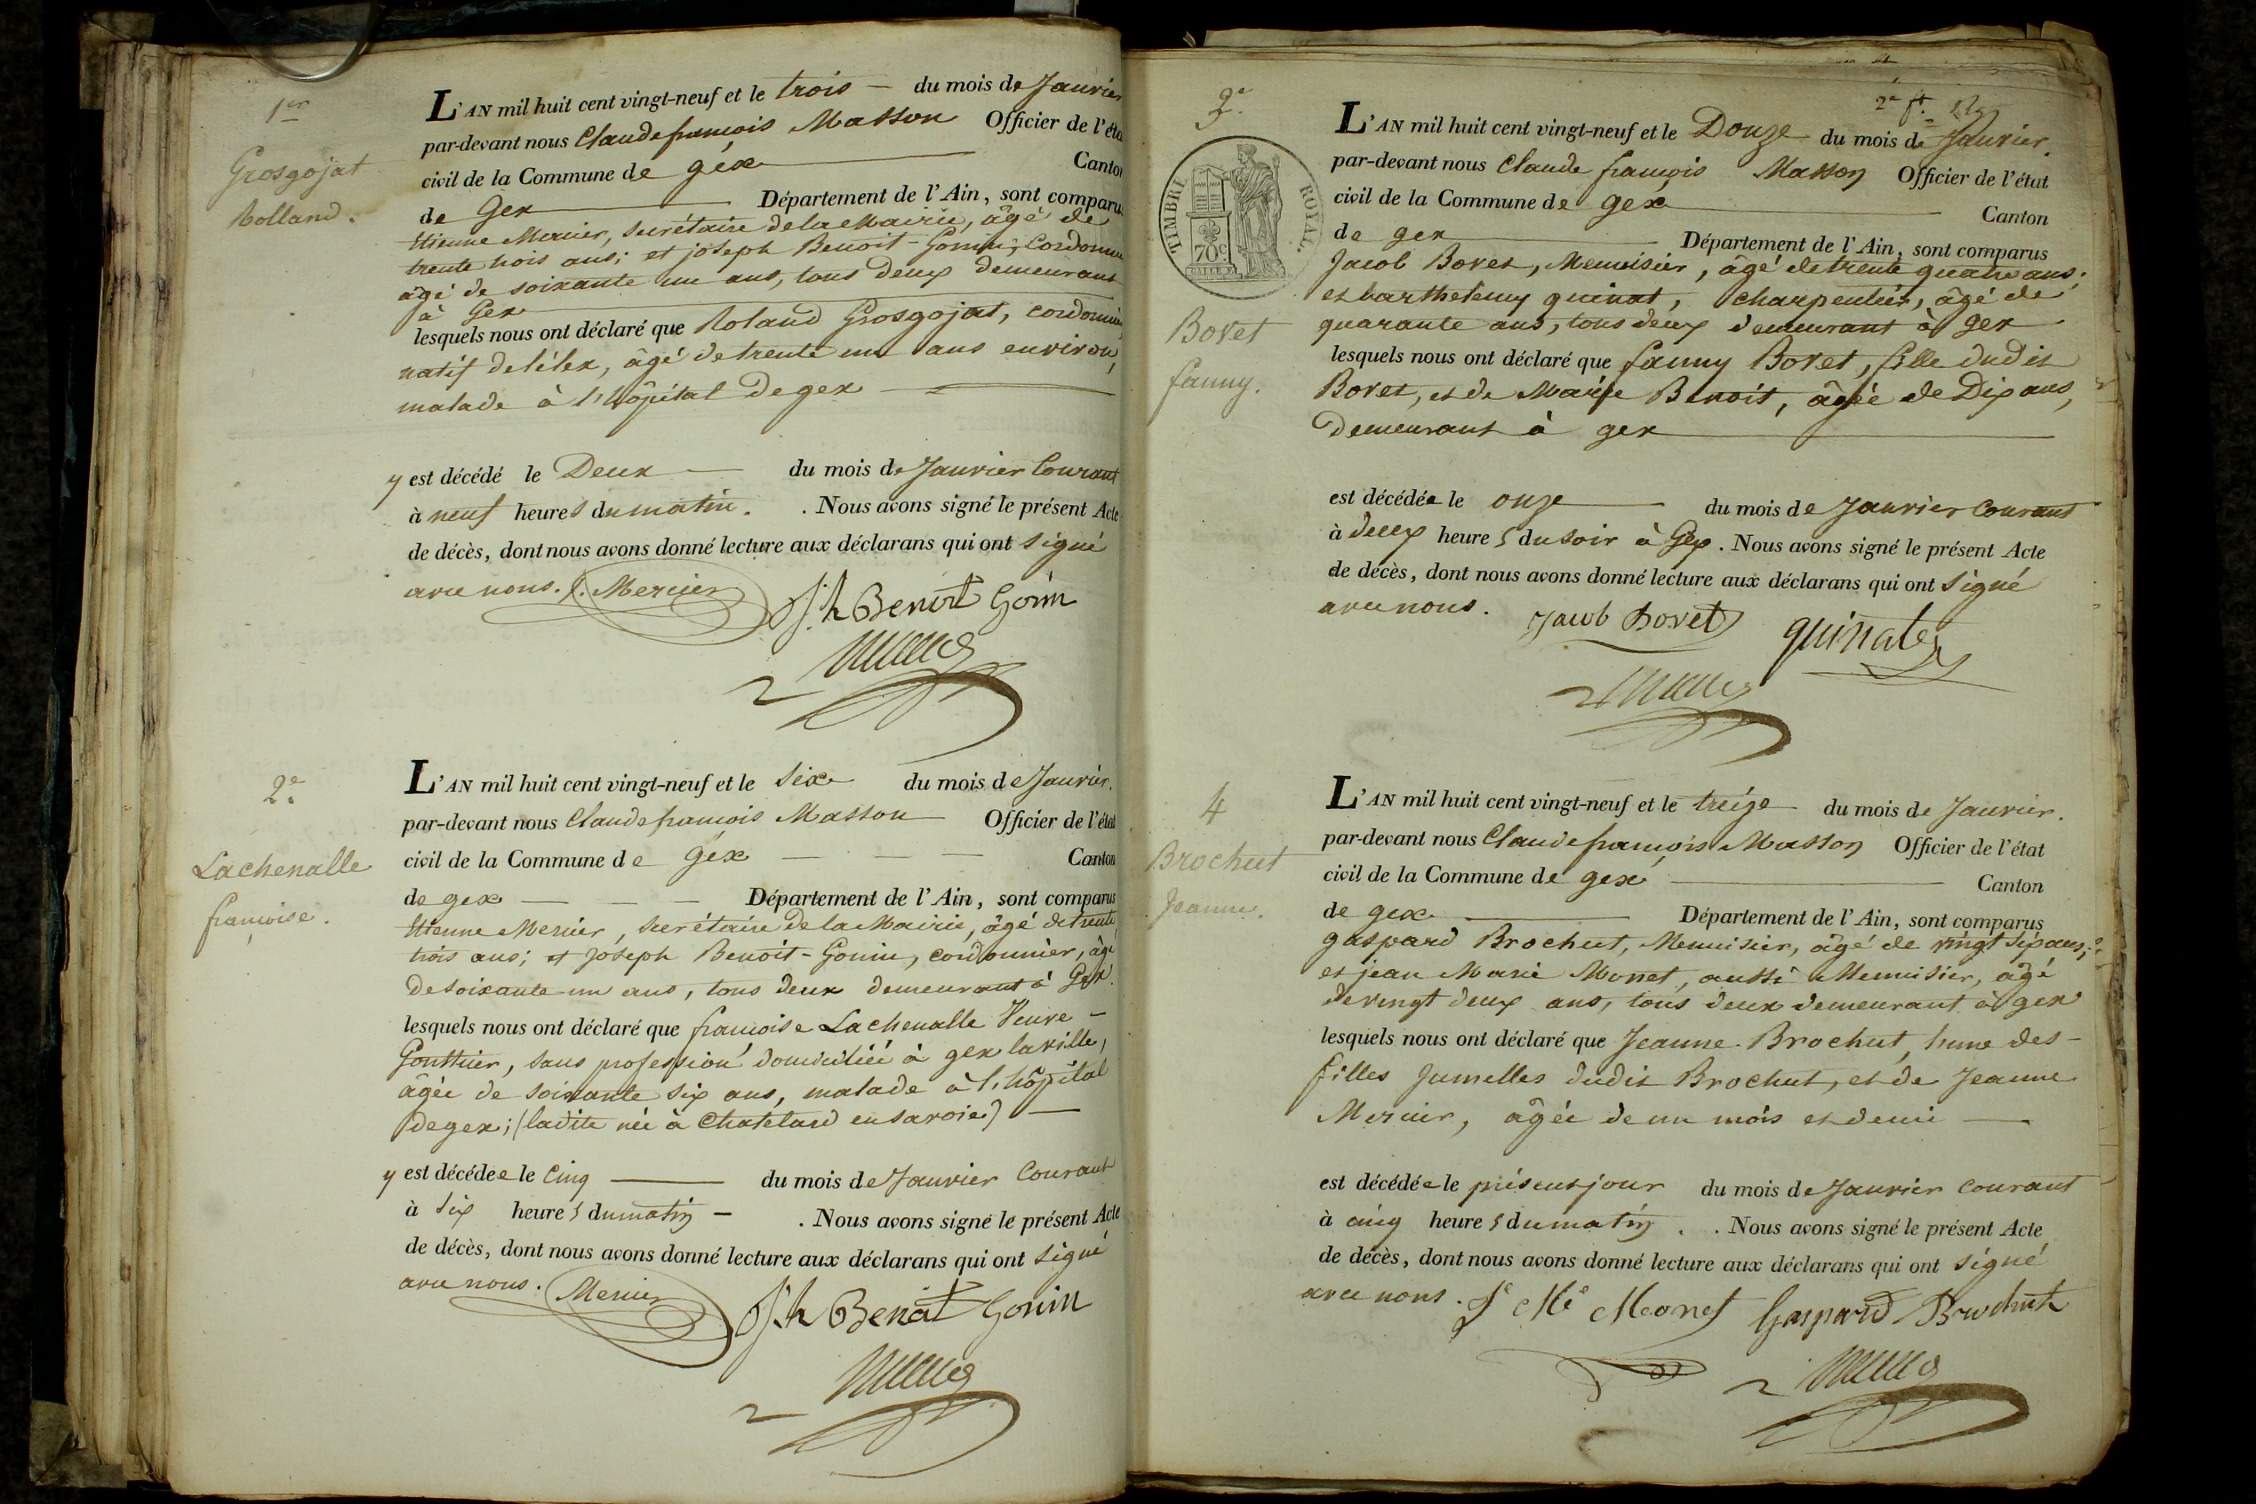 1er
Grosgojat
Rolland.
L'AN mil huit cent vingt-neuf et le trois — du mois de Janvier
par-devant nous Claude françois Masson Officier de l'éta
civil de la Commune de gex Canton
de Gex Département de l'Ain, sont comparus
Etienne Mercier, secrétaire de la Mairie, âgé de
trente trois ans; et joseph Benoit-Gonin, Cordonnier
âgé de soixante un ans, tous deux demeurant
à Gex
lesquels nous ont déclaré que Roland Grosgojat, cordonnier,
natif de lélex, âgé de trente un ans environ,
malade à l'hôpital de gex
y est décédé le Deux — du mois de Janvier Courant
à neuf heures du matin. . Nous avons signé le présent Acte
de décès, dont nous avons donné lecture aux déclarans qui ont signé
avec nous. Mercier Jh Benoit Gonin
2e
Lachenalle
françoise.
L'AN mil huit cent vingt-neuf et le Six du mois de Janvier.
par-devant nous Claude françois Masson Officier de l'état
civil de la Commune de Gex — — — Canton
de gex — — — Département de l'Ain, sont comparus
Etienne Mercier, secrétaire de la Mairie, âgé de trente
trois ans; et Joseph Benoit-Gonin, cordonnier, âgé
de soixante un ans, tous deux demeurant à Gex.
lesquels nous ont déclaré que françoise Lachenalle Veuve —
Gonthier, sans profession domiciliée à gex la ville,
âgée de soixante six ans, malade à l'hôpital
de gex; (ladite née à Chatelard en savoie) —
y est décédée le Cinq — du mois de Janvier Courant
à six heures du matin — . Nous avons signé le présent Acte
de décès, dont nous avons donné lecture aux déclarans qui ont signé
avec nous. Mercier Jh Benoit Gonin
2e ft.
3e.
TIMBRE ROYAL.
70c
Bovet
fanny.
L'AN mil huit cent vingt-neuf et le Douze du mois de Janvier.
par-devant nous Claude françois Masson Officier de l'état
civil de la Commune de gex Canton
de gex Département de l'Ain, sont comparus
Jacob Bovet, Menuisier, âgé de trente quatre ans;
et barthelemy quinat, charpentier, âgé de
quarante ans, tous deux demeurant à gex
lesquels nous ont déclaré que fanny Bovet, fille dudit
Bovet, et de Marie Benoit, âgée de Dix ans,
demeurant à gex
est décédée le onze du mois de Janvier courant
à deux heures du soir à Gex. Nous avons signé le présent Acte
de décès, dont nous avons donné lecture aux déclarans qui ont signé
avec nous. Jacob Bovet quinat
4
Brochut
Jeanne.
L'AN mil huit cent vingt-neuf et le treize du mois de Janvier.
par-devant nous Claude françois Masson Officier de l'état
civil de la Commune de gex Canton
de gex Département de l'Ain, sont comparus
gaspard Brochut, Menuisier, âgé de vingt six ans;
et jean Marie Monet, aussi Menuisier, âgé
de vingt deux ans, tous deux demeurant à gex
lesquels nous ont déclaré que Jeanne Brochut, l'une des —
filles Jumelles dudit Brochut, et de Jeanne
Mercier, âgée de un mois et demi —
est décédée le présent jour du mois de Janvier courant
à cinq heures du matin . . Nous avons signé le présent Acte
de décès, dont nous avons donné lecture aux déclarans qui ont signé
avec nous. Jn Mie Monet Gaspard Brochut